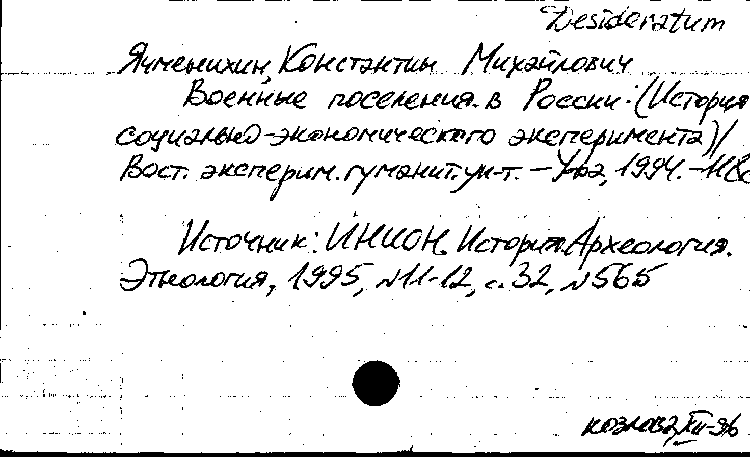 Desideratum
Ячменихин, Константин Михайлович
Военные поселения в России: (История
социально-экономического эксперимента)/
Вост. эксперим. гуманит. ун-т. – Уфа, 1994. –118с
Источник: ИНИОН. История. Археология.
Этнология, 1995, №11-12, с. 32, №565
Козлова, XII-96